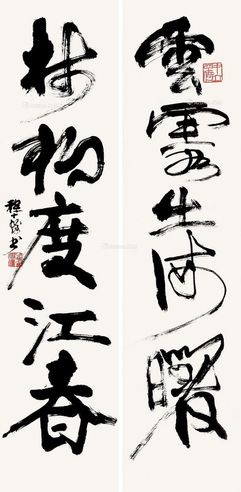 雲霞出海曙
梅柳度江春
程十髮書